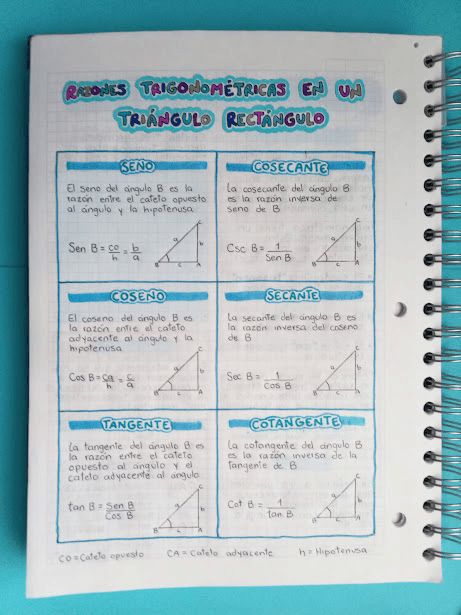 RAZONES TRIGONOMÉTRICAS EN UN
TRIÁNGULO RECTÁNGULO
SENO
El seno del ángulo B es la
razón entre el cateto opuesto
al ángulo y la hipotenusa
Sen B = co/h = b/a
C
a
b
B
c
A
COSECANTE
La cosecante del ángulo B
es la razón inversa de
seno de B
Csc B = 1/Sen B
C
a
b
B
c
A
COSENO
El coseno del ángulo B es
la razón entre el cateto
adyacente al ángulo y la
hipotenusa
Cos B = ca/h = c/a
C
a
b
B
c
A
SECANTE
La secante del ángulo B es
la razón inversa del coseno
de B
Sec B = 1/Cos B
C
a
b
B
c
A
TANGENTE
La tangente del ángulo B es
la razón entre el cateto
opuesto al ángulo y el
cateto adyacente al ángulo
tan B = Sen B/Cos B
C
a
b
B
c
A
COTANGENTE
La cotangente del ángulo B
es la razón inversa de la
tangente de B
Cot B = 1/tan B
C
a
b
B
c
A
CO = Cateto opuesto CA = Cateto adyacente h = Hipotenusa